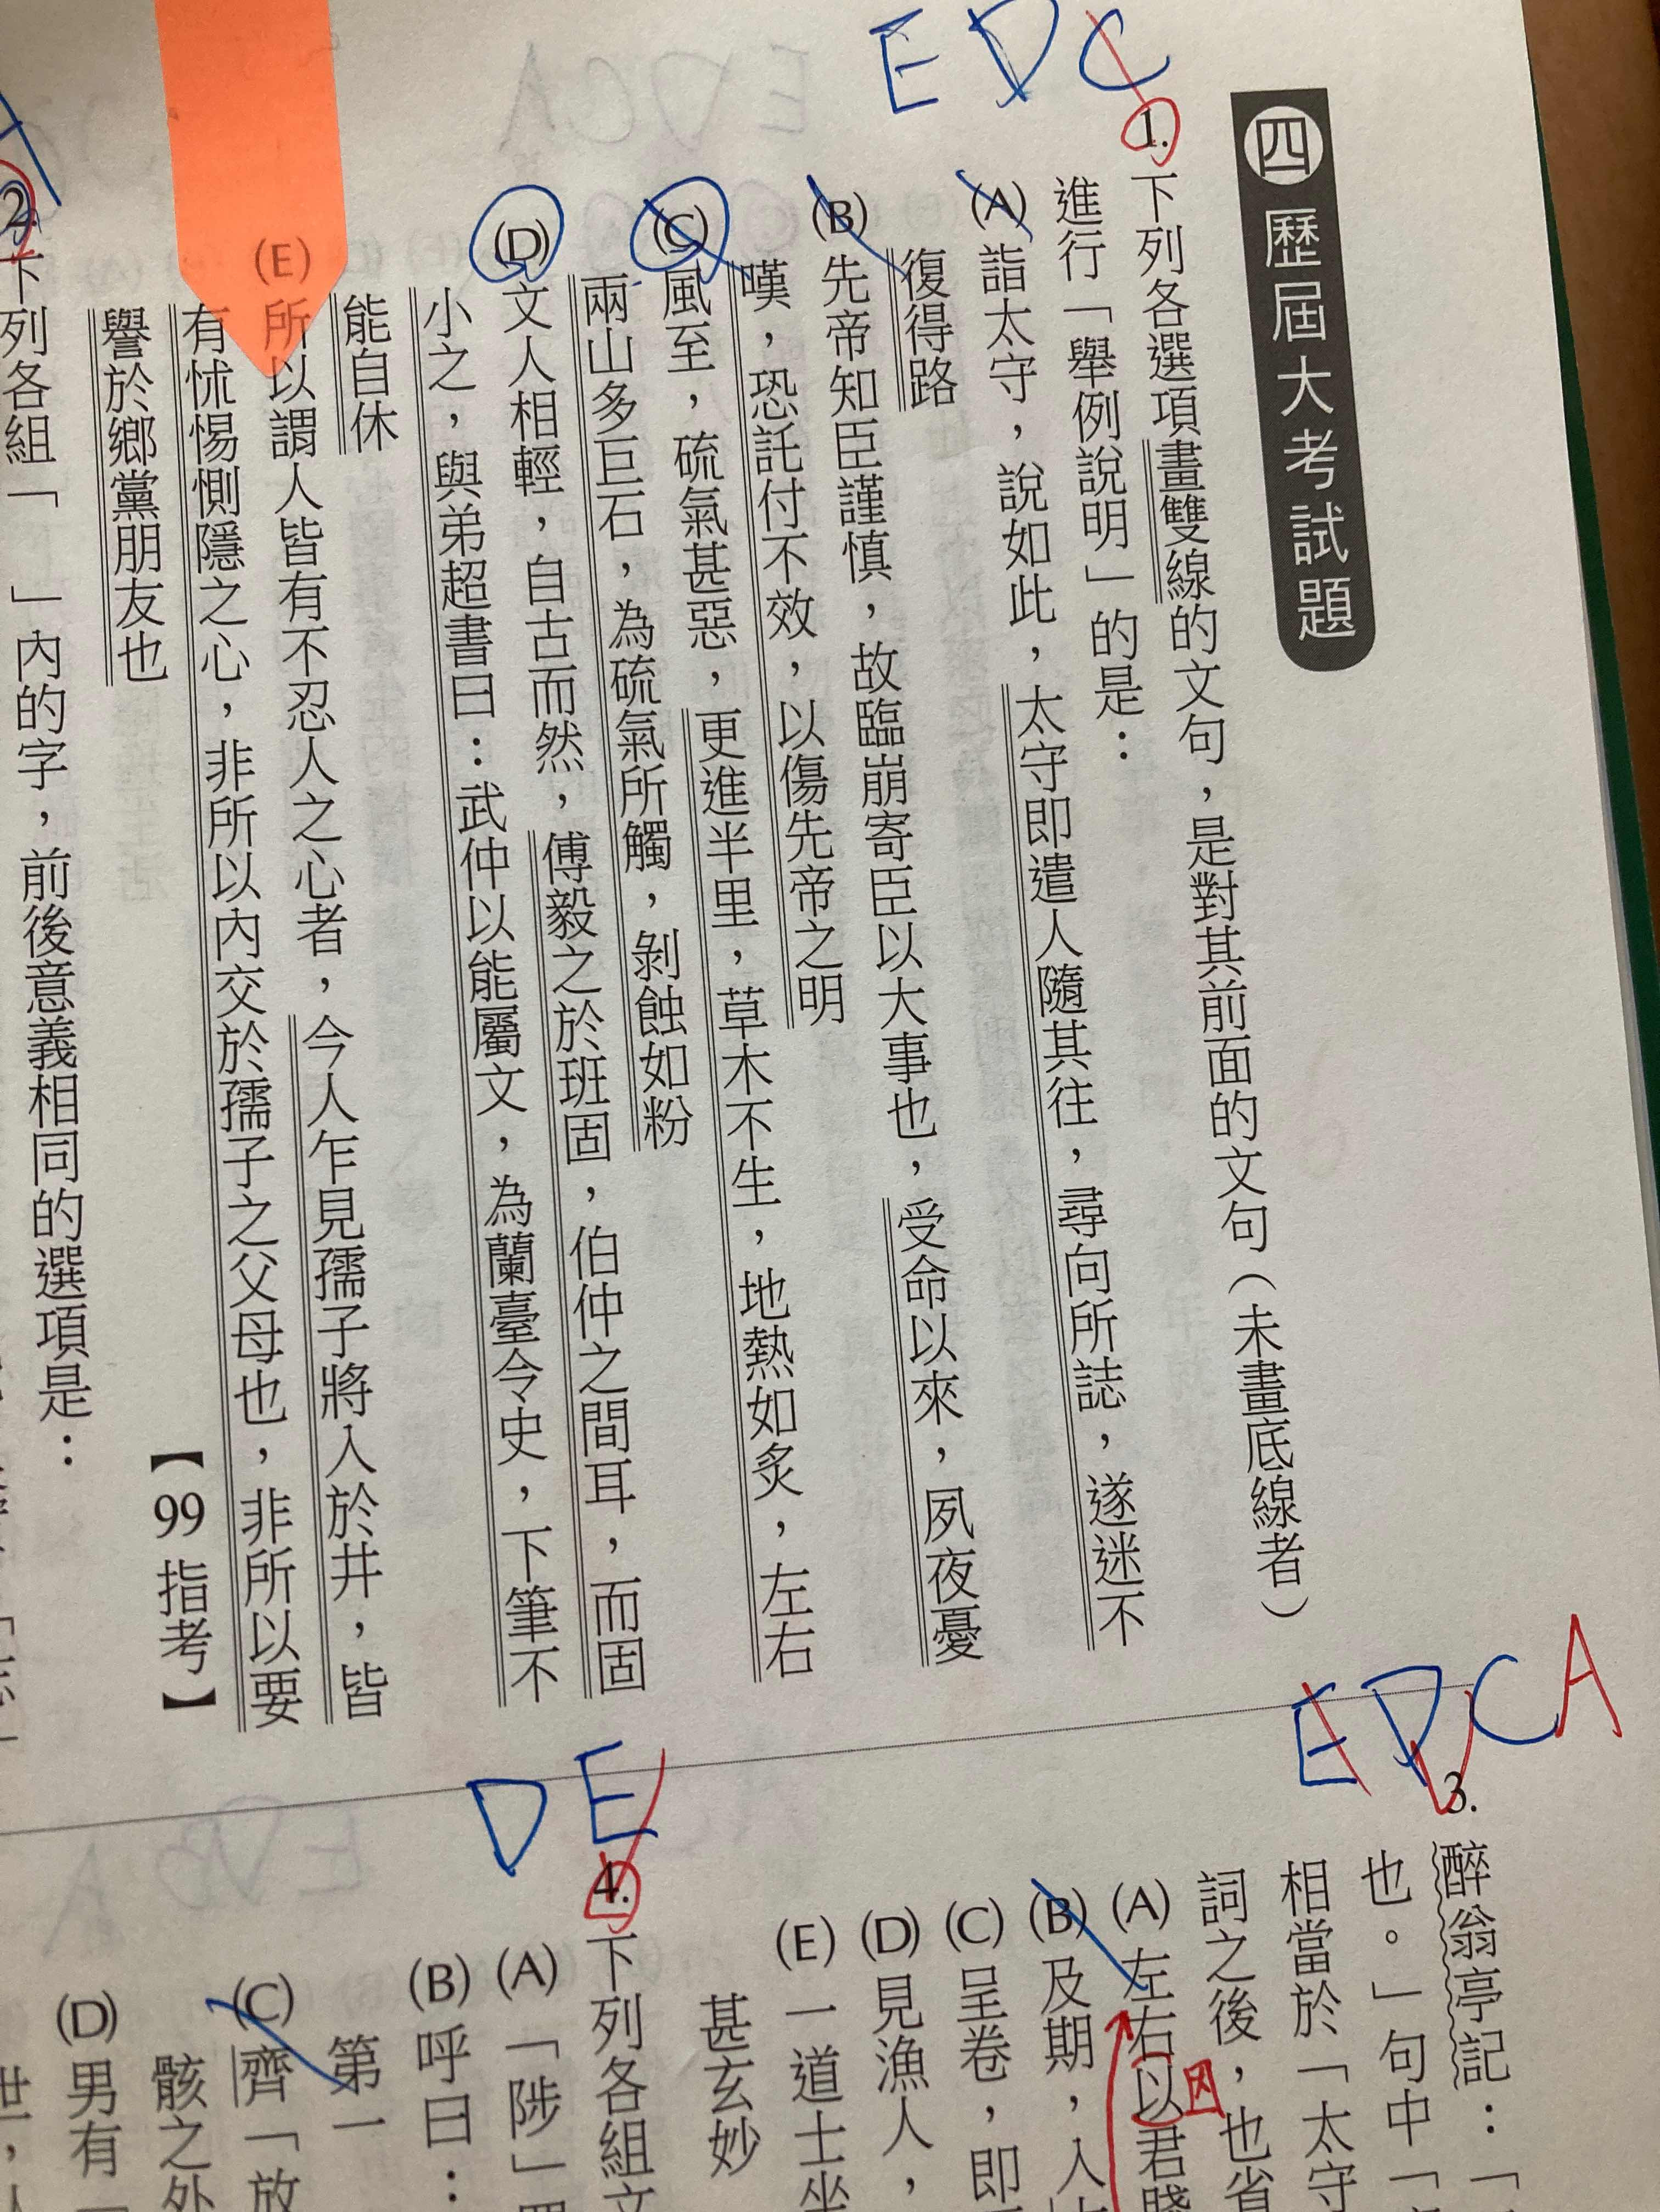 四 歷屆大考試題
EDC
1. 下列各選項畫雙線的文句，是對其前面的文句（未畫底線者）
進行「舉例說明」的是：
(A) 詣太守，說如此，太守即遣人隨其往，尋向所誌，遂迷不
復得路
(B) 先帝知臣謹慎，故臨崩寄臣以大事也，受命以來，夙夜憂
嘆，恐託付不效，以傷先帝之明
(C) 風至，硫氣甚惡，更進半里，草木不生，地熱如炙，左右
兩山多巨石，為硫氣所觸，剝蝕如粉
(D) 文人相輕，自古而然，傅毅之於班固，伯仲之間耳，而固
小之，與弟超書曰：武仲以能屬文，為蘭臺令史，下筆不
能自休
(E) 所以謂人皆有不忍人之心者，今人乍見孺子將入於井，皆
有怵惕惻隱之心，非所以內交於孺子之父母也，非所以要
譽於鄉黨朋友也
【99 指考】
2. 下列各組「　」內的字，前後意義相同的選項是：
EDCA
3. 醉翁亭記：「
也。」句中「
相當於「太守
詞之後，也省
(A) 左右以君賤
因
(B) 及期，入
(C) 呈卷，即
(D) 見漁人，
(E) 一道士坐
甚玄妙
DE
4. 下列各組文
(A) 「陟」
(B) 呼曰：
第一
(C) 齊「放
骸之外
(D) 男有「
世，